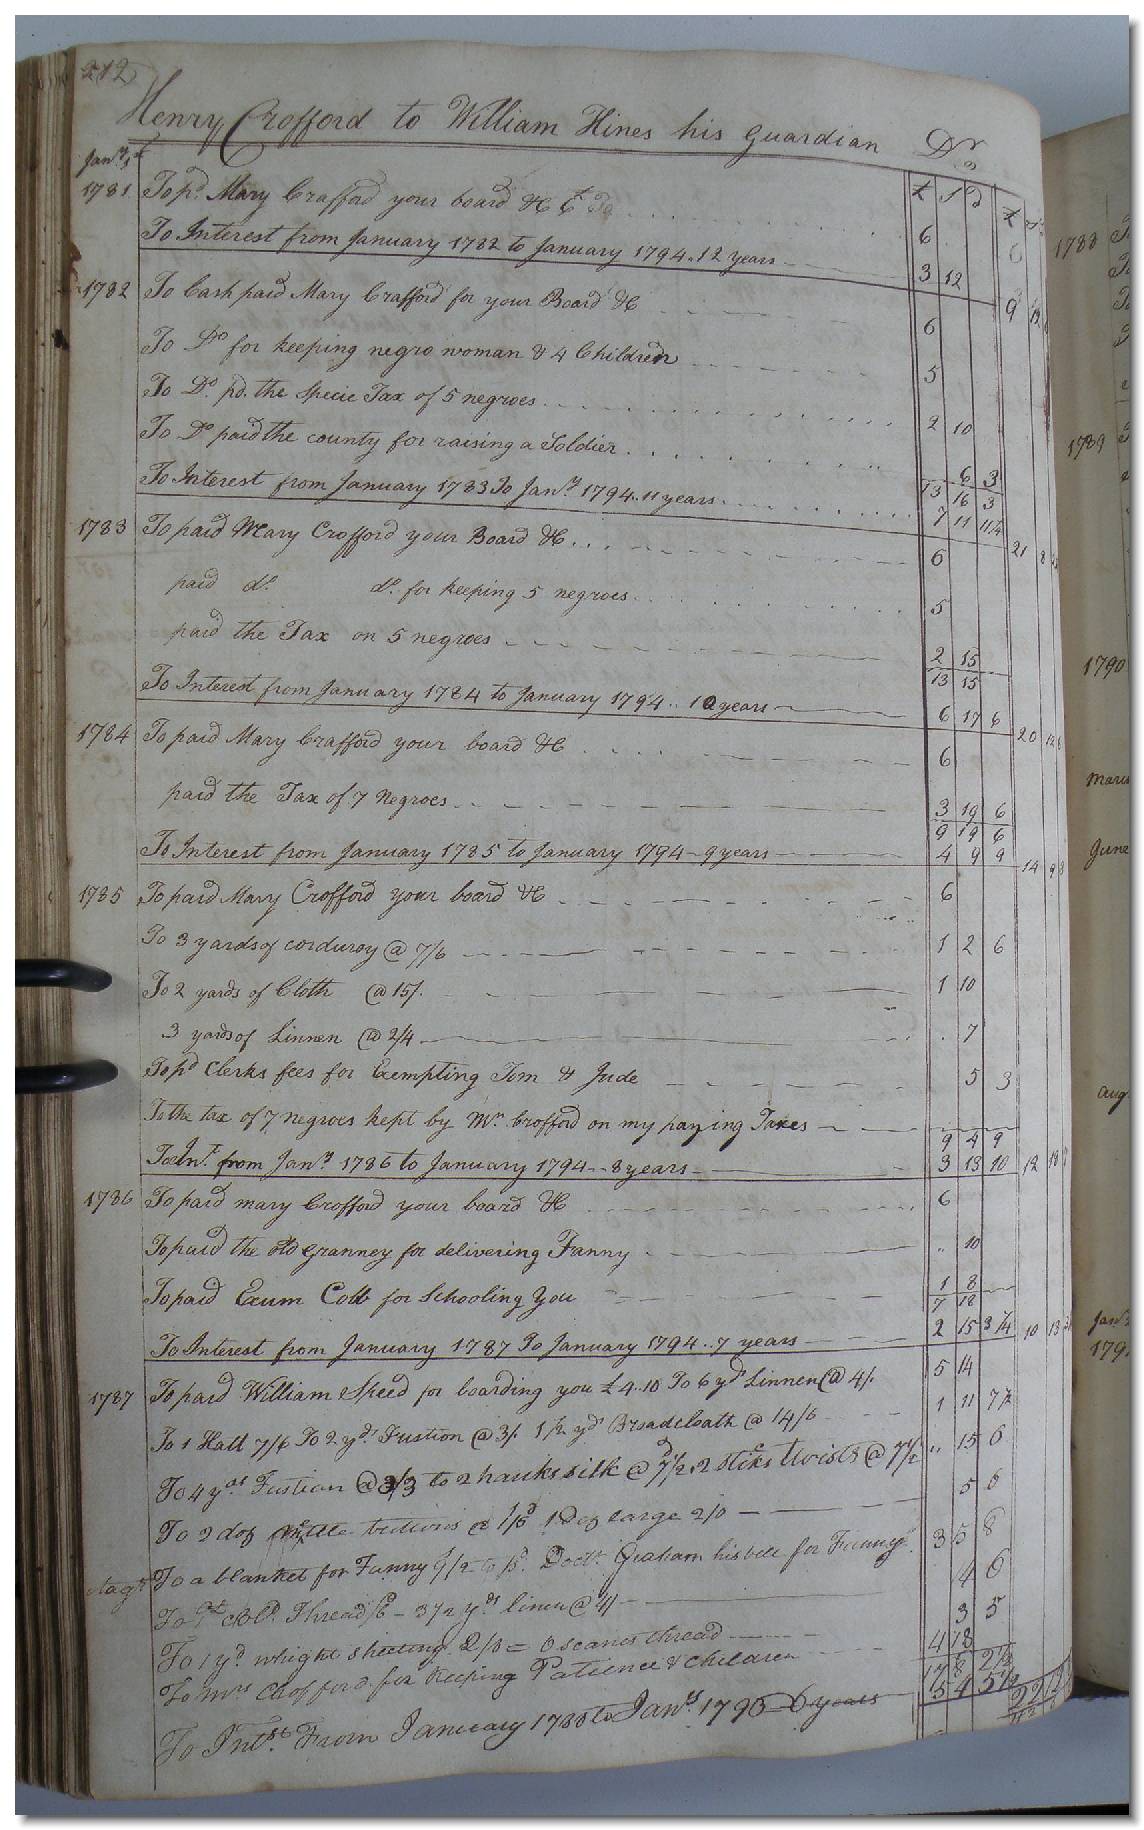 212
Henry Crofford to William Hines his Guardian Dr
Jany 1st £ S D £
1781 To pd. Mary Crafford your board &C 6
To Interest from January 1782 to January 1794..12 years 3 12 9 12
1782 To Cash paid Mary Crafford for your Board &C 6
To Do for keeping negro woman & 4 Children 5
To Do. pd. the Specie Tax of 5 negroes 2 10
To Do paid the county for raising a Soldier 6 3
13 16 3
To Interest from January 1783 To Jany 1794..11 years 7 11 11¼ 21 8
1783 To paid Mary Crofford your Board &C 6
paid do. do. for keeping 5 negroes 5
paid the Tax on 5 negroes 2 15
13 15
To Interest from January 1784 to January 1794.. 10 years 6 17 6 20 12
1784 To paid Mary Crafford your board &C 6
paid the Tax of 7 Negroes 3 19 6
9 19 6
To Interest from January 1785 to January 1794 - 9 years 4 9 9 14 9
1785 To paid Mary Crofford your board &C 6
To 3 yards of corduroy @ 7/6 1 2 6
To 2 yards of Cloth @ 15/. 1 10
3 yards of Linnen @ 2/4 7
To pd Clerks fees for Exempting Tom & Jude 5 3
To the tax of 7 negroes kept by Mrs. Crofford on my paying Taxes
9 4 9
To Int. from Jany 1786 to January 1794 -- 8 years 3 13 10 12 18 7
1786 To paid mary Crofford your board &C 6
To paid the old Granney for delivering Fanny 10
To paid Exum Cobb for Schooling You 1 8
7 18
To Interest from January 1787 To January 1794..7 years 2 15 3¼ 10 13
1787 To paid William Speed for boarding you £4..10 To 6 yds Linnen @ 4/. 5 14
To 1 Hatt 7/6 To 2 yds. Fustion @ 3/. 1½ yds Broadcloath @ 14/6 1 11 7½
To 4 yds Fustian @ 3/3 to 2 hanks silk @ 7½ 2 sticks twist @ 7½ 15 6
To 2 doz buttons @ 1/3 1 Doz large 2/0 5 6
Aug To a blanket for Fanny 9/2 to pd. Doctr. Graham his bill for Fanny 3 5 8
Thread - 3½ yds linen @ 4/ 4 6
To 1 yd. whight sheeting 2/8 = scanes thread 3 5
To Mrs Crofford for keeping Patience & children 4 18
17 8 2½
To Intst. From January 1788 to Jany. 1793 - 6 years 5 4 5½ 22 12
1788
1789
1790
March
June
Aug
179